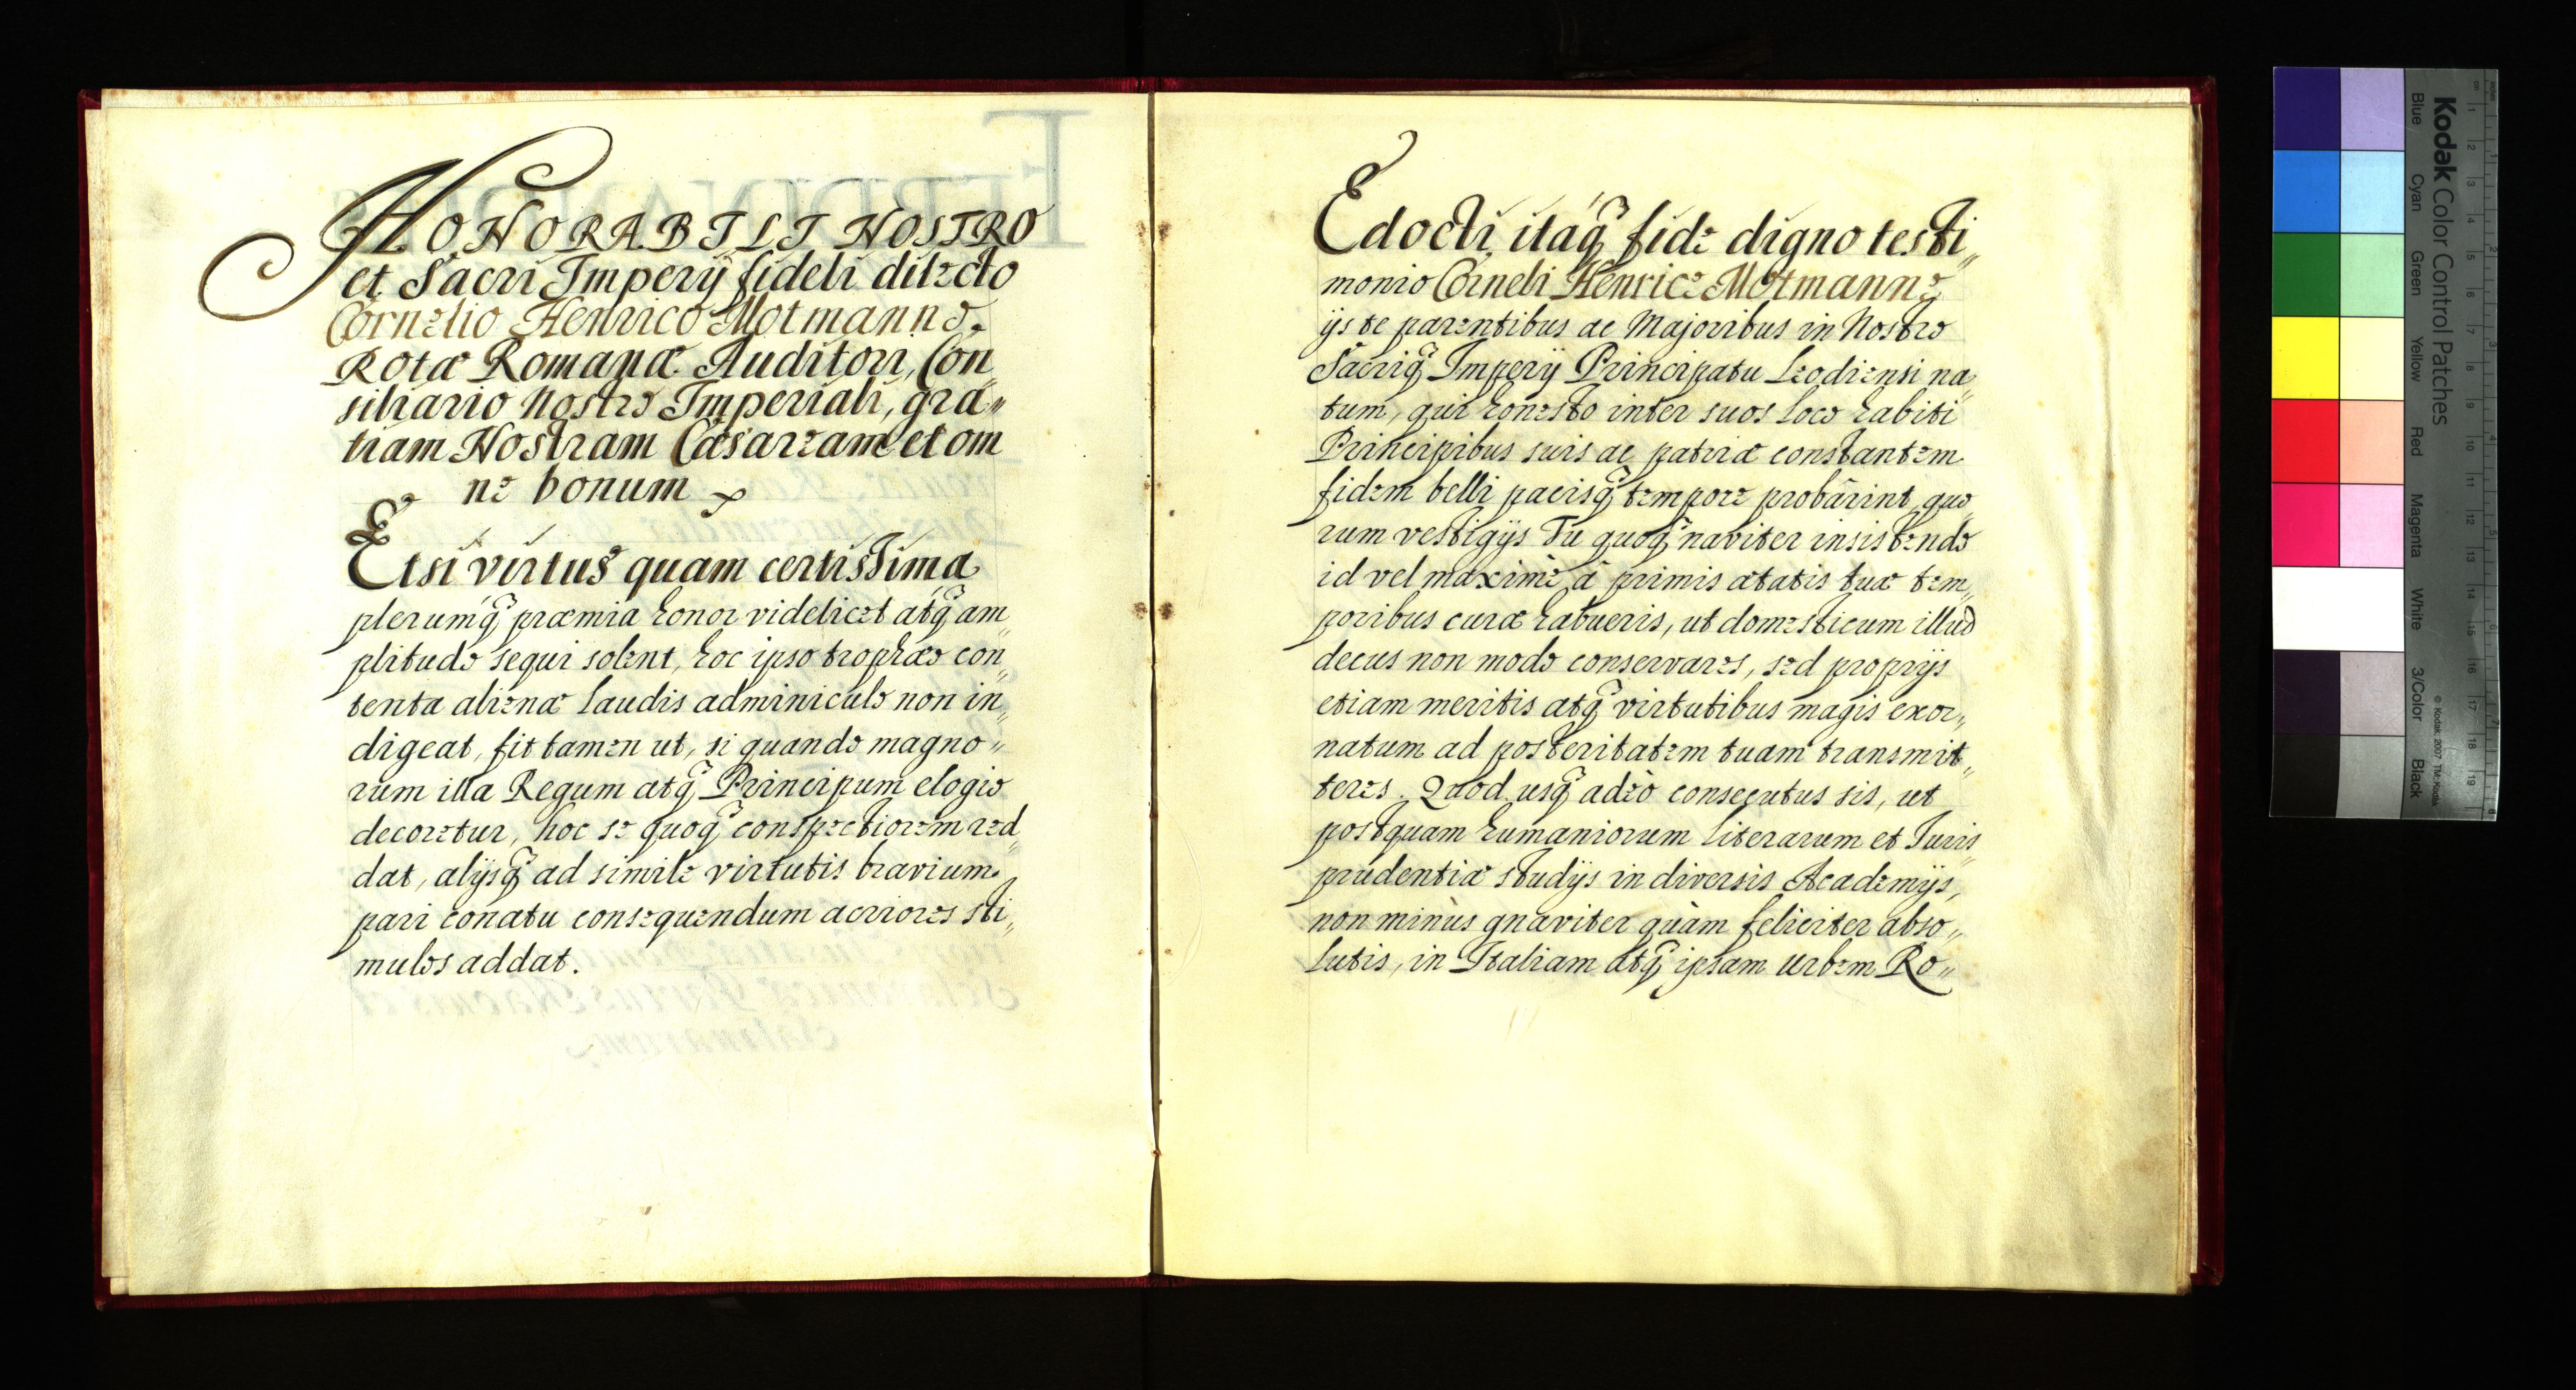 HONORABILI NOSTRO
et Sacri Imperij fideli dilecto
Cornelio Henrico Motmanno,
Rotæ Romanæ Auditori, Con„
siliario Nostro Imperiali, gra„
tiam Nostram Cæsaream et om
ne bonum
Etsi virtus quam certissima
plerumq́; præmia honor videlicet atq́; am„
plitudo sequi solent, hoc ipso trophæo con„
tenta alienæ laudis adminiculo non in„
digeat, fit tamen ut, si quando magno„
rum illa Regum atq́; Principum elogio
decoretur, hoc se quoq́; conspectiorem red„
dat, alijsq́; ad simile virtutis bravium
pari conatu consequendum acriores sti„
mulos addat.
Edocti itaq́; fide digno testi„
monio Corneli Henrice Motmanne,
ijs te parentibus ac Majoribus in Nostro
Sacriq́; Imperij Principatu Leodiensi na„
tum, qui honesto inter suos loco habiti
Principibus suis ac patriæ constantem
fidem belli pacisq́; tempore probârint, quo„
rum vestigijs Tu quoq́; naviter insistendo
id vel maximè à primis ætatis tuæ tem„
poribus curæ habueris, ut domesticum illud
decus non modo conservares, sed proprijs
etiam meritis atq́; virtutibus magis exor„
natum ad posteritatem tuam transmit„
teres. Quod usq́; adeò consecutus sis, ut
postquam humaniorum literarum et Juris„
prudentiæ studijs in diversis Academijs,
non minùs gnaviter quàm feliciter abso„
lutis, in Italiam atq́; ipsam urbem Ro„
Kodak Color Control Patches
Blue Cyan Green Yellow Red Magenta White 3/Color Black
© Kodak, 2007 TM: Kodak